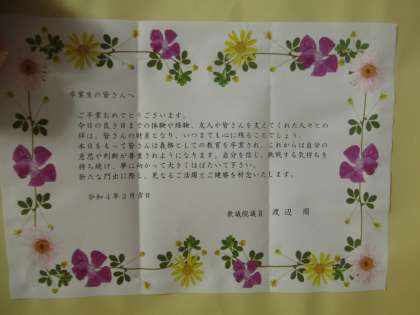 卒業生の皆さんへ
ご卒業おめでとうございます。
今日の良き日までの体験や経験、友人や皆さんを支えてくれた人々との
絆は、皆さんの財産となり、いつまでも心に残ることでしょう。
本日をもって皆さんは義務としての教育を卒業され、これからは自分の
意思や判断が尊重されるようになります。自分を信じ、挑戦する気持ちを
持ち続け、夢に向かって大きくはばたいて下さい。
新たな門出に際し、更なるご活躍とご健勝を祈念いたします。
令和4年3月吉日
衆議院議員 渡辺 周